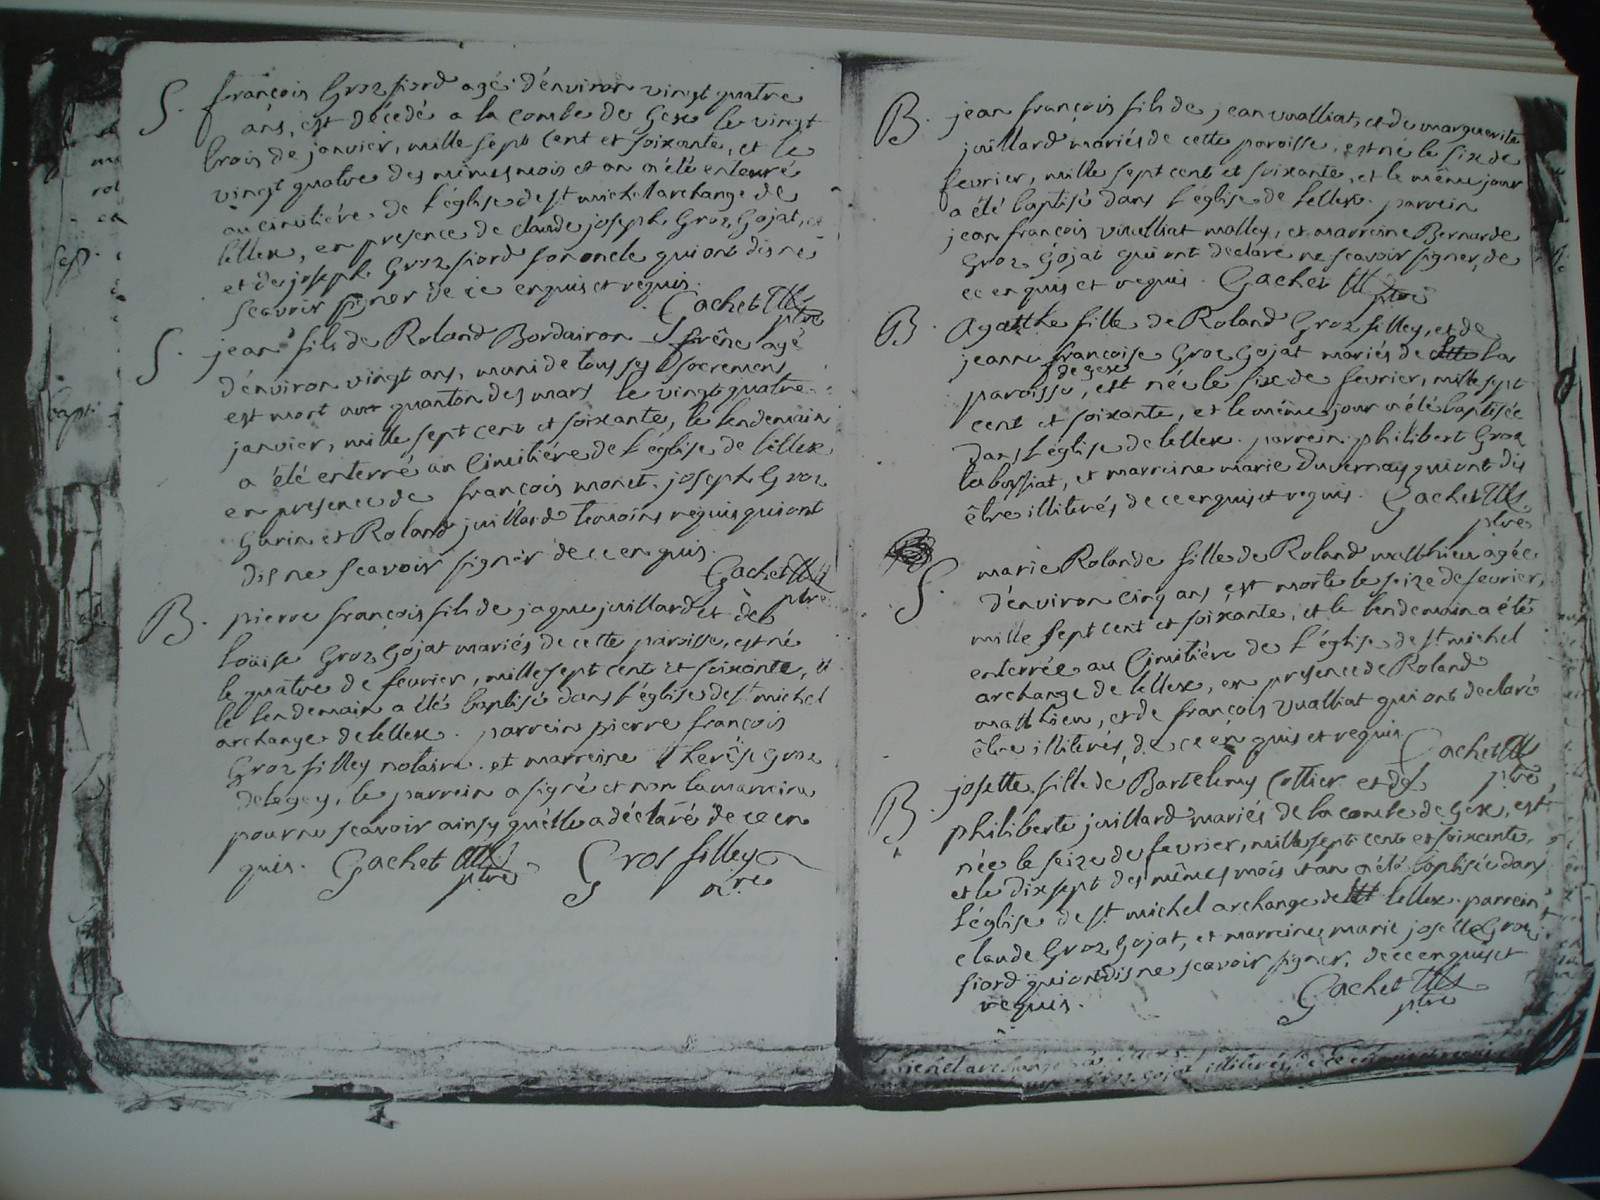 S. françois Groz fiord agé d'énviron vingt quatre
ans, est décédé a la combe de Gex le vingt
trois de janvier, mille sept cent et soixante, et le
vingt quatre des mêmes mois et an a été enterré
au cimitiére de l'église de st michel archange de
lellex, en presence de claude joseph Groz Gojat,
et de joseph Groz fiord son oncle qui ont dis ne
scavoir signer de ce enquis et requis.
Gachet ptre
S. jean fils de Roland Bordairon agé
d'énviron vingt ans, muni de tous ses sacremens
est mort quanton des mars le vingt quatre
janvier, mille sept cent et soixante, le lendemain
a été enterré au Cimitiére de l'église de lellex,
en presence de françois monet, joseph Groz
Gurin et Roland juillard temoins requis qui ont
dis ne scavoir signer de ce enquis.
Gachet ptre
B. pierre françois fils de jaque juillard et de
loüise Groz Gojat mariés de cette paroisse, est né
le quatre de fevrier, mille sept cent et soixante, et
le lendemain a été baptisé dans l'église de st michel
archange de lellex. parrein pierre françois
Groz filley notaire. et marreine therése Groz
delegey, le parrein a signé et non la marreine
pour ne scavoir ainsy qu'elle a déclaré de ce en
quis. Gachet ptre Gros filley nre
B. jean françois fils de jean vualliat, et de marguerite
juillard mariés de cette paroisse, est né le six de
fevrier, mille sept cent et soixante, et le même jour
a été baptisé dans l'église de lellex. parrein
jean françois vuelliat malley, et marreine Bernarde
Groz Gojat qui ont declaré ne scavoir signer, de
ce enquis et requis. Gachet ptre
B. Agatthe fille de Roland Groz filley, et de
jeanne françoise Groz Gojat mariés de la
de gex
paroisse, est née le six de fevrier, mille sept
cent et soixante, et le même jour a été baptisée
dans l'église de lellex. parrein philibert Groz
tabussiat, et marreine marie Duvernay qui ont dis
être illitérés de ce enquis et requis. Gachet
ptre
S. marie Rolande fille de Roland matthieu agée
d'énviron cinq ans, est morte le seize de fevrier,
mille sept cent et soixante, et le lendemain a été
enterrée au Cimitiére de l'église de st michel
archange de lellex, en presence de Roland
matthieu, et de françois vualliat qui ont declaré
être illitérés, de ce enquis et requis. Gachet
ptre
B. josette fille de Bartelemy Cottier et de
philiberte juillard mariés de la combe de Gex, est
née le seize de fevrier, mille sept cent et soixante,
et le dixsept des mêmes mois et an a été baptisée dans
l'église de st michel archange de lellex. parrein
claude Groz Gojat, et marreine marie josette Groz
fiord qui ont dis ne scavoir signer, de ce enquis et
requis. Gachet
ptre
michel archange
Groz gojat illitérés, de ce